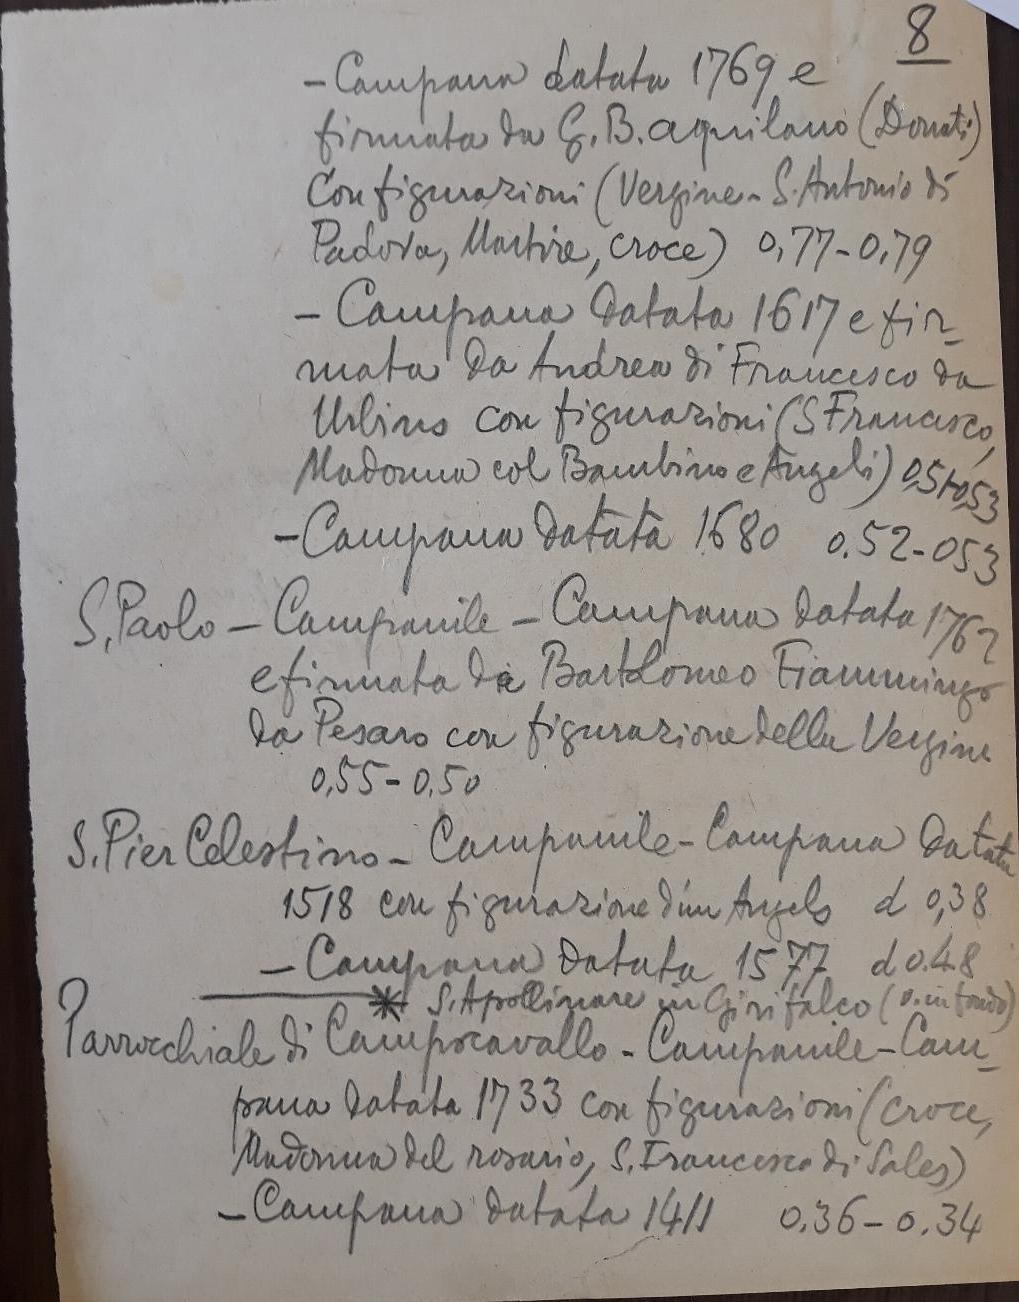 8
- Campana datata 1769 e
firmata da G. B. aquilano (Donati)
Con figurazioni (Vergine - S. Antonio di
Padova, Martire, croce) 0,77-0,79
- Campana datata 1617 e fir-
mata da Andrea di Francesco da
Urbino con figurazioni (S Francesco,
Madonna col Bambino e Angeli) 0,51-0,53
- Campana datata 1680 0.52-053
S. Paolo - Campanile - Campana datata 1762
e firmata da Bartolomeo Fiammingo
da Pesaro con figurazione della Vergine
0,55-0,50
S. Pier Celestino - Campanile - Campana datata
1518 con figurazione d'un Angelo d 0,38
- Campana datata 1577 d 0.48
* S. Apollinare in Girifalco (v. in fondo)
Parrocchiale di Campocavallo - Campanile - Cam-
pana datata 1733 con figurazioni (croce,
Madonna del rosario, S. Francesco di Sales)
- Campana datata 1411 0.36-0.34